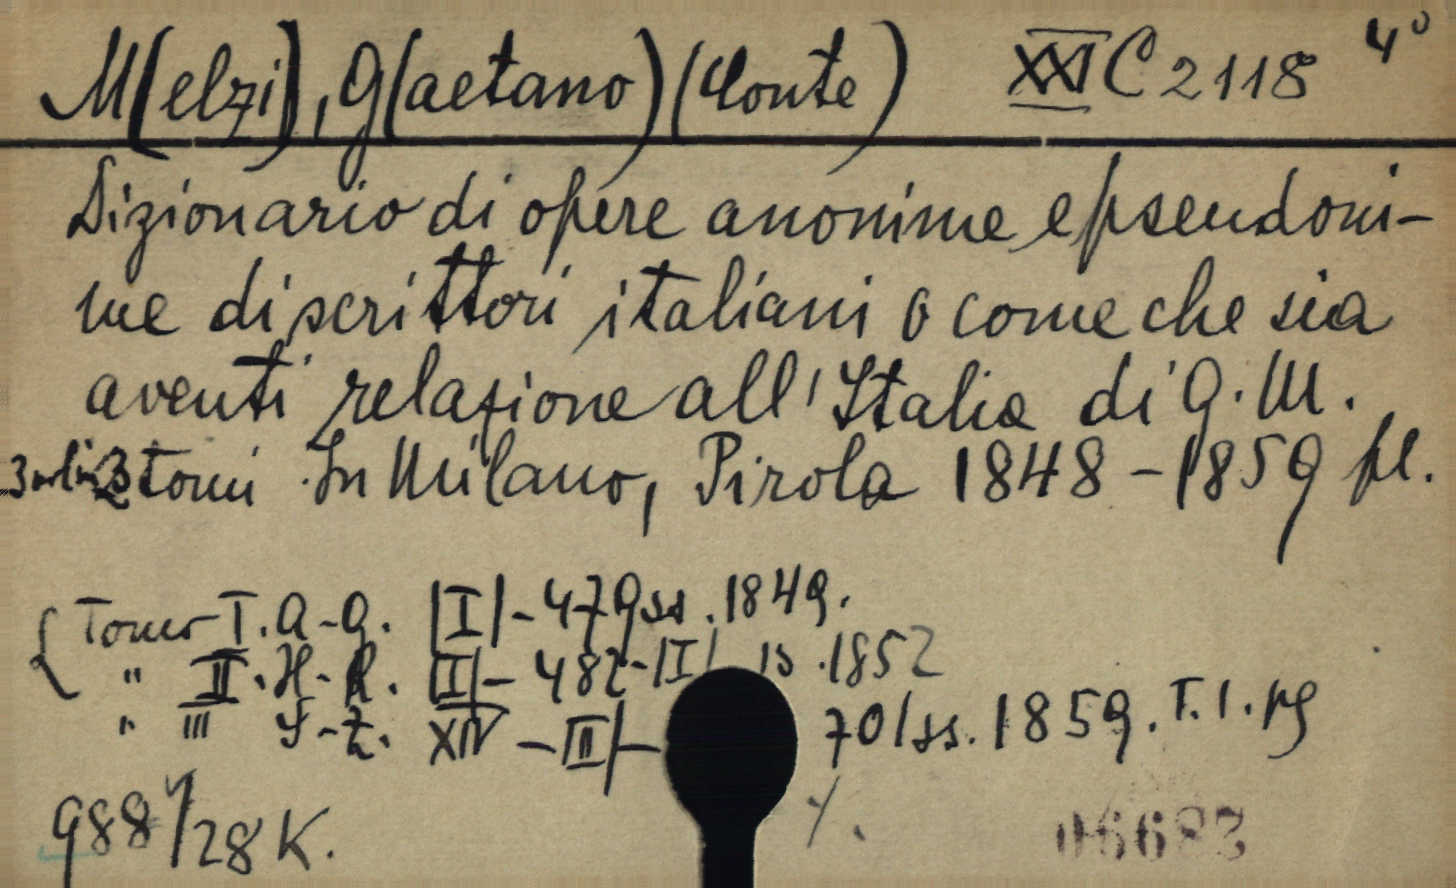 M(elzi), G(aetano) (Conte) XXI C 2118 4°
Dizionario di opere anonime e pseudoni-
me di scrittori italiani o come che sia
aventi relazione all'Italia di G. M.
3 tomi In Milano, Pirola 1848-1859 pl.
Tomo I. A-G. |I|-479 ss. 1849.
" II. H-R. |I|-482-|I| ss. 1852
" III S-Z. XIV-|II|- 70 / ss. 1859. T. 1. pg
988/28 K. %.
06683